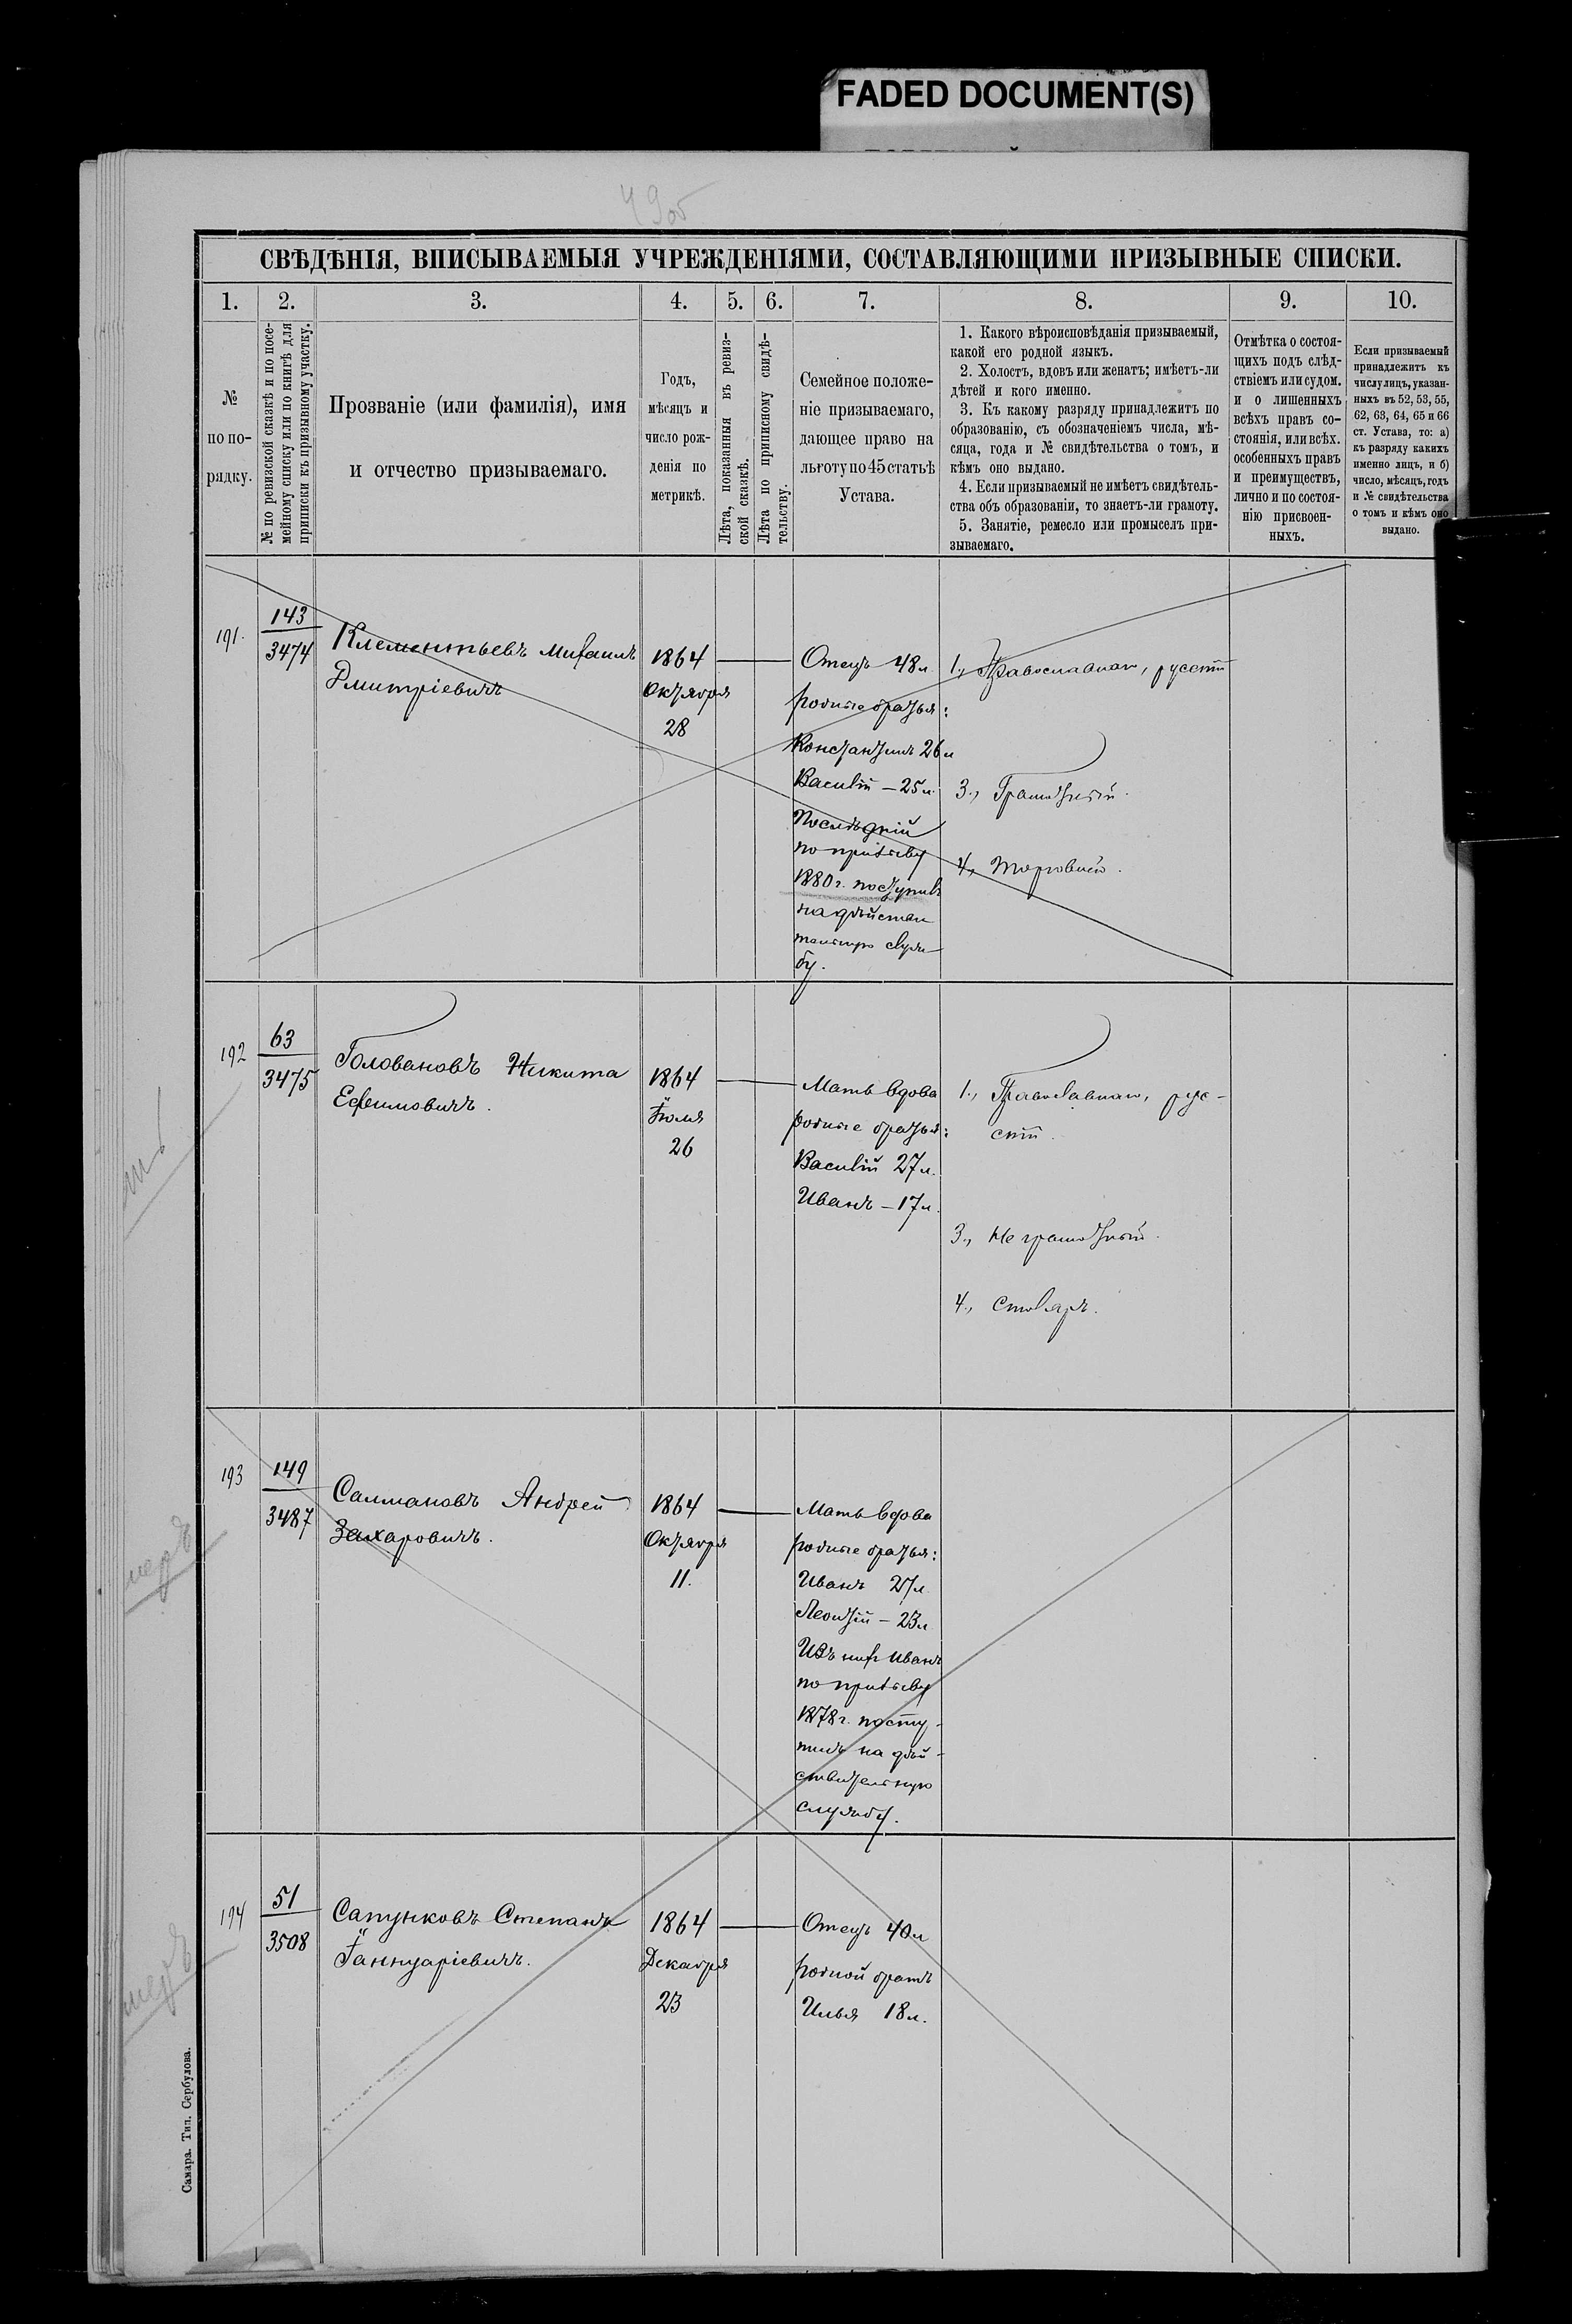 FADED DOCUMENT(S)
49об
СВѢДѢНІЯ, ВПИСЫВАЕМЫЯ УЧРЕЖДЕНІЯМИ, СОСТАВЛЯЮЩИМИ ПРИЗЫВНЫЕ СПИСКИ.
1. 2. 3. 4. 5. 6. 7. 8. 9. 10.
№
по по-
рядку.
№ по ревизской сказкѣ и по посе-
мейному списку или по книгѣ для
приписки къ призывному участку.
Прозваніе (или фамилія), имя
и отчество призываемаго.
Годъ,
мѣсяцъ и
число рож-
денія по
метрикѣ.
Лѣта, показанныя въ ревиз-
ской сказкѣ.
Лѣта по приписному свидѣ-
тельству.
Семейное положе-
ніе призываемаго,
дающее право на
льготу по 45 статьѣ
Устава.
1. Какого вѣроисповѣданія призываемый,
какой его родной языкъ.
2. Холостъ, вдовъ или женатъ; имѣетъ-ли
дѣтей и кого именно.
3. Къ какому разряду принадлежитъ по
образованію, съ обозначеніемъ числа, мѣ-
сяца, года и № свидѣтельства о томъ, и
кѣмъ оно выдано.
4. Если призываемый не имѣетъ свидѣтель-
ства объ образованіи, то знаетъ-ли грамоту.
5. Занятіе, ремесло или промыселъ при-
зываемаго.
Отмѣтка о состоя-
щихъ подъ слѣд-
ствіемъ или судом.
и о лишенныхъ
всѣхъ правъ со-
стоянія, или всѣх.
особенныхъ правъ
и преимуществъ,
лично и по состоя-
нію присвоен-
ныхъ.
Если призываемый
принадлежитъ къ
числу лицъ, указан-
ныхъ въ 52, 53, 55,
62, 63, 64, 65 и 66
ст. Устава, то: а)
къ разряду какихъ
именно лицъ, и б)
число, мѣсяцъ, годъ
и № свидѣтельства
о томъ и кѣмъ оно
выдано.
191.
143
3474
Клементьевъ Михаилъ
Дмитріевичъ
1864
Октября
28
Отецъ 48 л.
родные братья:
Константинъ 26 л
Василій – 25 л.
Послѣдній
по призыву
1880 г. поступилъ
на дѣйстви
тельную служ-
бу.
1., Православнаго, русскій
3., Грамотный.
4., Торговлей.
192
63
3475
Головановъ Никита
Ефимовичъ.
1864
Іюля
26
Мать вдова
родные братья:
Василій 27 л.
Иванъ – 17 л.
1., Православнаго, рус-
скій.
3., Не грамотный.
4., Столяръ.
193
149
3487
Салмановъ Андрей
Захаровичъ.
1864
Октября
11.
Мать вдова
родные братья:
Иванъ 27 л
Леонтій – 23 л
Изъ нихъ Иванъ
по призыву
1878 г. посту-
пилъ на дѣй-
ствительную
службу.
194
51
3508
Сапунковъ Степанъ
Іаннуаріевичъ.
1864
Декабря
23
Отецъ 40 л
родной братъ
Илья 18 л.
Самара. Тип. Сербулова.